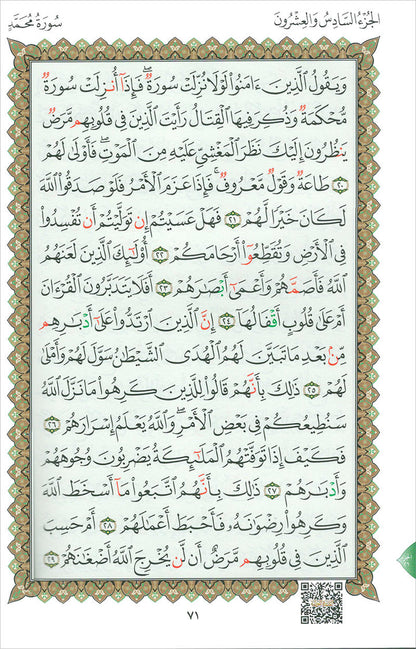 الجُزْءُ السَّادِسُ وَالعِشْرُونَ
سُورَةُ مُحَمَّدٍ
وَيَقُولُ ٱلَّذِينَ ءَامَنُواْ لَوۡلَا نُزِّلَتۡ سُورَةٞۖ فَإِذَآ أُنزِلَتۡ سُورَةٞ
مُّحۡكَمَةٞ وَذُكِرَ فِيهَا ٱلۡقِتَالُ رَأَيۡتَ ٱلَّذِينَ فِي قُلُوبِهِم مَّرَضٞ
يَنظُرُونَ إِلَيۡكَ نَظَرَ ٱلۡمَغۡشِيِّ عَلَيۡهِ مِنَ ٱلۡمَوۡتِۖ فَأَوۡلَىٰ لَهُمۡ
٢٠ طَاعَةٞ وَقَوۡلٞ مَّعۡرُوفٞۚ فَإِذَا عَزَمَ ٱلۡأَمۡرُ فَلَوۡ صَدَقُواْ ٱللَّهَ
لَكَانَ خَيۡرٗا لَّهُمۡ ٢١ فَهَلۡ عَسَيۡتُمۡ إِن تَوَلَّيۡتُمۡ أَن تُفۡسِدُواْ
فِي ٱلۡأَرۡضِ وَتُقَطِّعُوٓاْ أَرۡحَامَكُمۡ ٢٢ أُوْلَٰٓئِكَ ٱلَّذِينَ لَعَنَهُمُ
ٱللَّهُ فَأَصَمَّهُمۡ وَأَعۡمَىٰٓ أَبۡصَٰرَهُمۡ ٢٣ أَفَلَا يَتَدَبَّرُونَ ٱلۡقُرۡءَانَ
أَمۡ عَلَىٰ قُلُوبٍ أَقۡفَالُهَآ ٢٤ إِنَّ ٱلَّذِينَ ٱرۡتَدُّواْ عَلَىٰٓ أَدۡبَٰرِهِم
مِّنۢ بَعۡدِ مَا تَبَيَّنَ لَهُمُ ٱلۡهُدَى ٱلشَّيۡطَٰنُ سَوَّلَ لَهُمۡ وَأَمۡلَىٰ
لَهُمۡ ٢٥ ذَٰلِكَ بِأَنَّهُمۡ قَالُواْ لِلَّذِينَ كَرِهُواْ مَا نَزَّلَ ٱللَّهُ
سَنُطِيعُكُمۡ فِي بَعۡضِ ٱلۡأَمۡرِۖ وَٱللَّهُ يَعۡلَمُ إِسۡرَارَهُمۡ ٢٦
فَكَيۡفَ إِذَا تَوَفَّتۡهُمُ ٱلۡمَلَٰٓئِكَةُ يَضۡرِبُونَ وُجُوهَهُمۡ
وَأَدۡبَٰرَهُمۡ ٢٧ ذَٰلِكَ بِأَنَّهُمُ ٱتَّبَعُواْ مَآ أَسۡخَطَ ٱللَّهَ
وَكَرِهُواْ رِضۡوَٰنَهُۥ فَأَحۡبَطَ أَعۡمَٰلَهُمۡ ٢٨ أَمۡ حَسِبَ
ٱلَّذِينَ فِي قُلُوبِهِم مَّرَضٌ أَن لَّن يُخۡرِجَ ٱللَّهُ أَضۡغَٰنَهُمۡ ٢٩
٧١